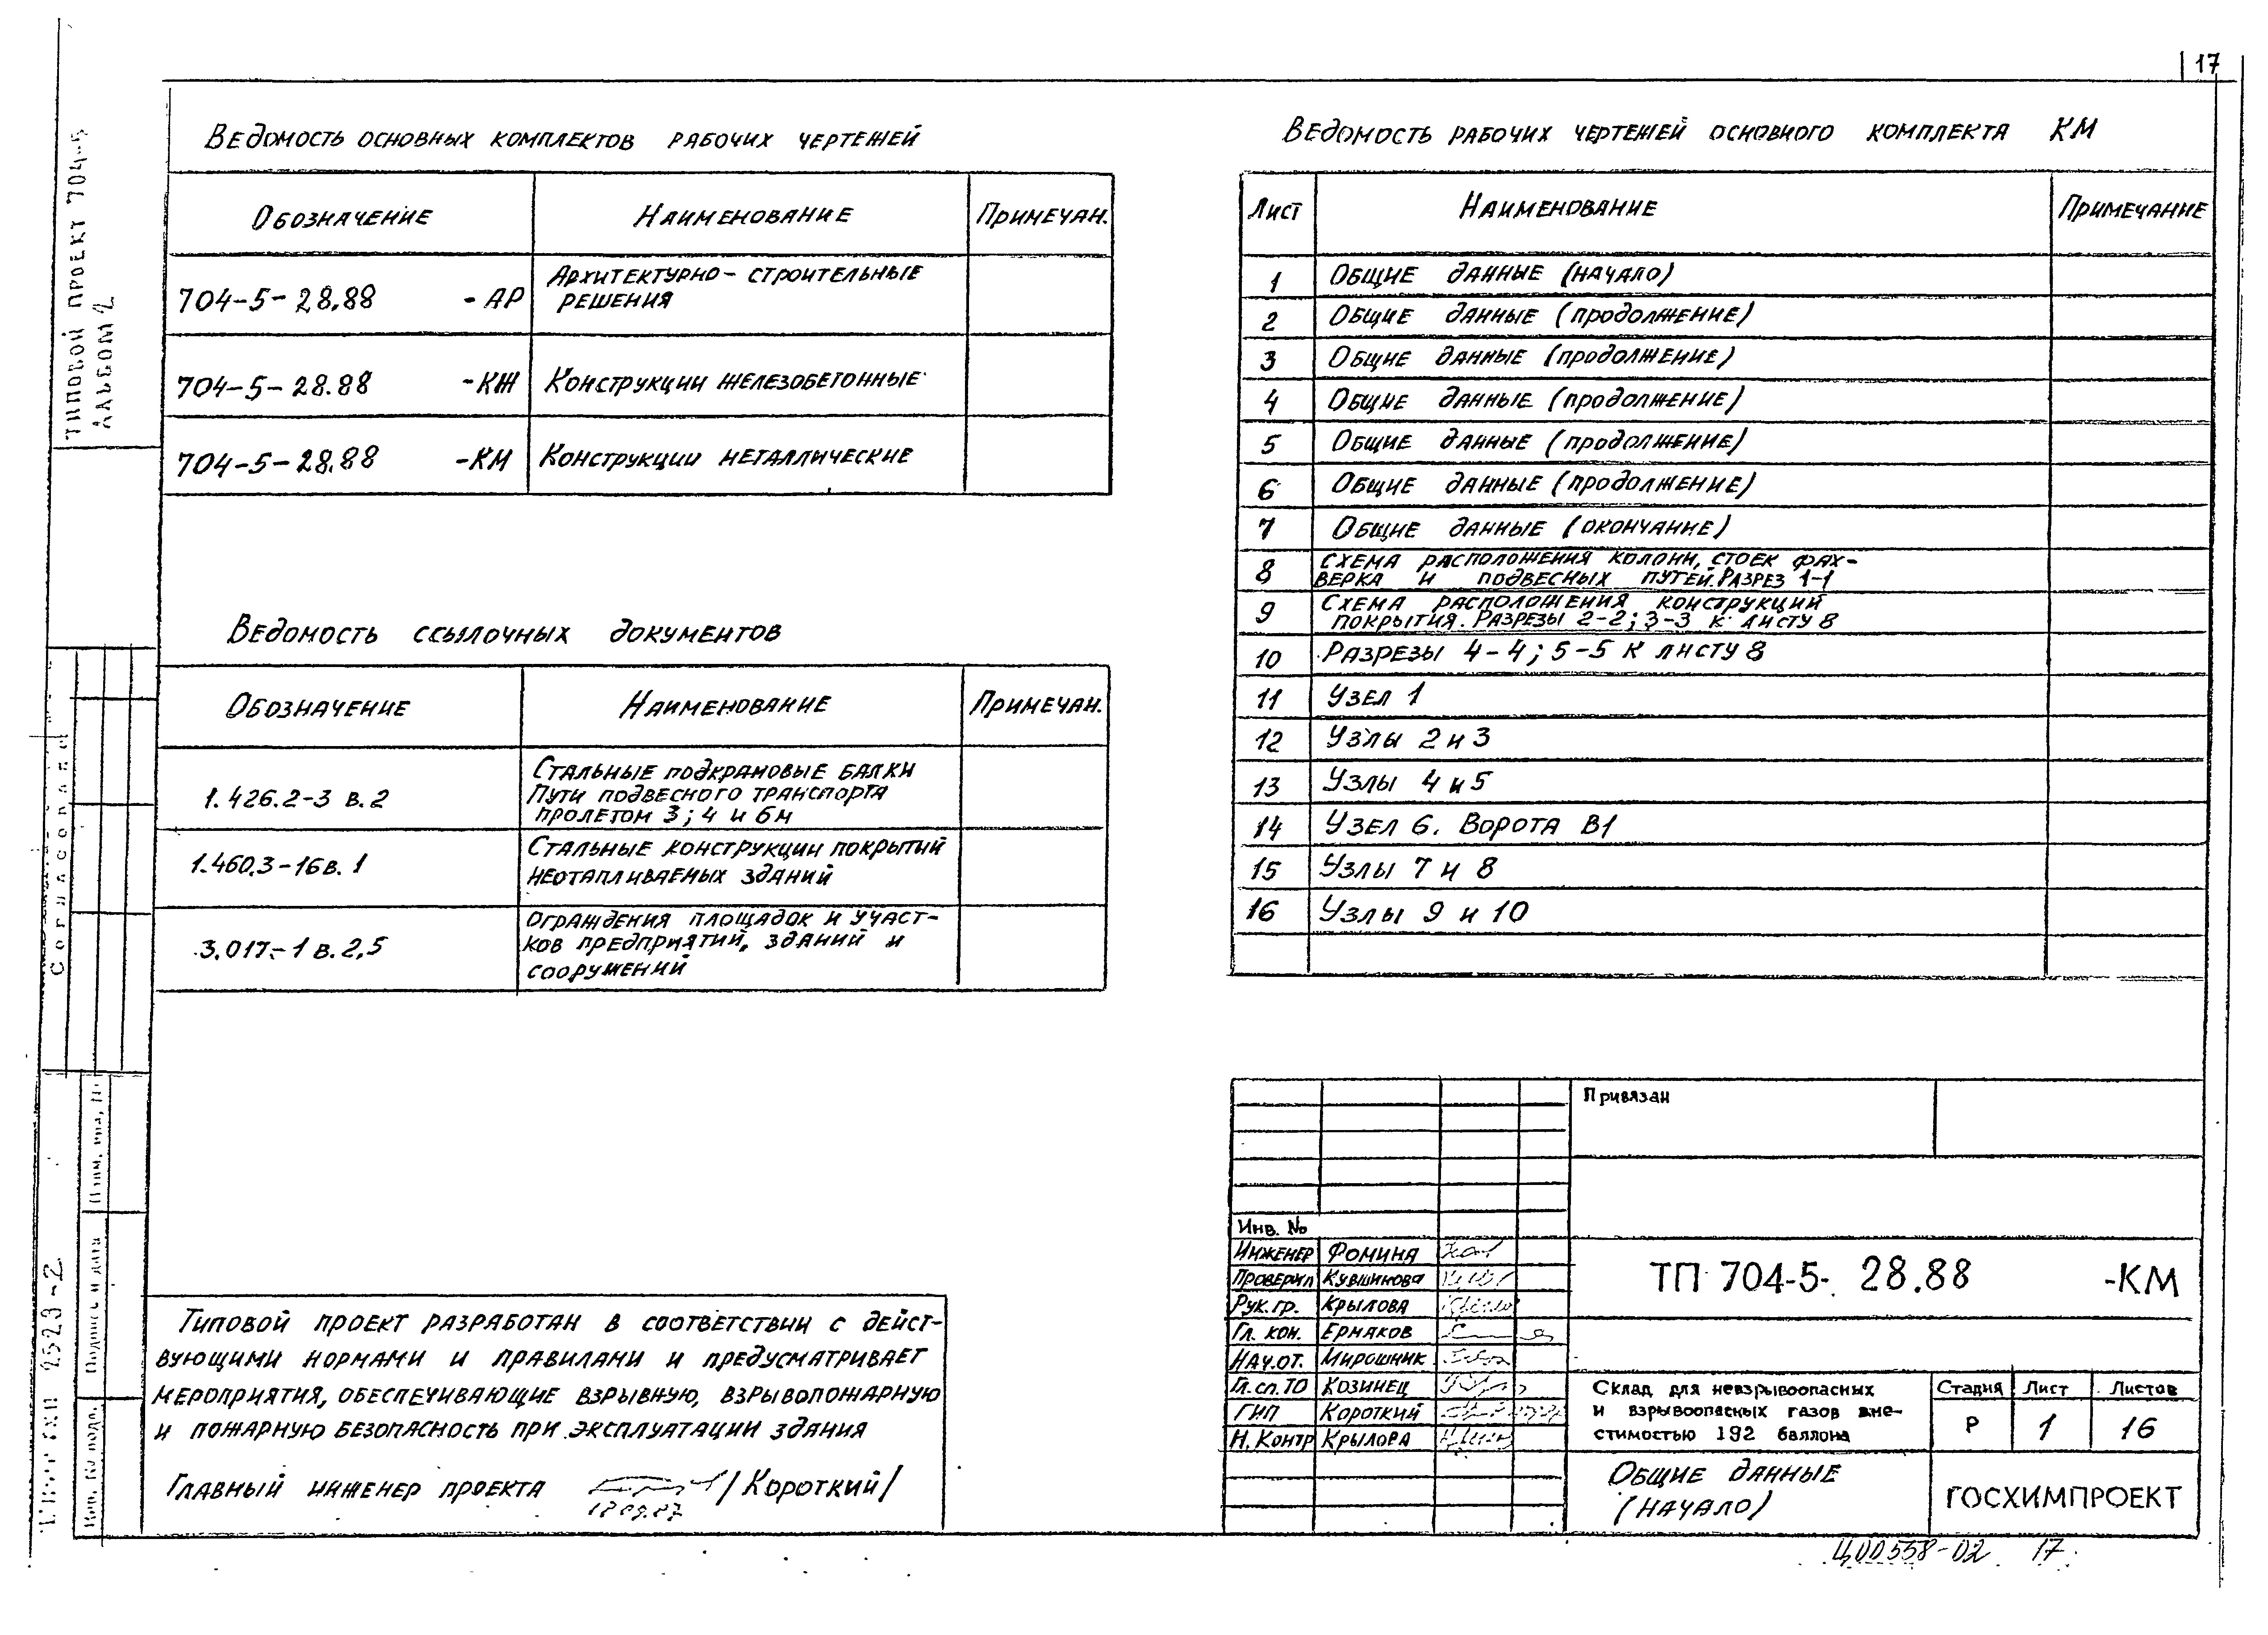 17
ТИПОВОЙ ПРОЕКТ 704-5
АЛЬБОМ 2
Согласовано
Взам. инв. №
Подпись и дата
Инв. № подл.
Ведомость основных комплектов рабочих чертежей
Обозначение Наименование Примечан.
704-5-28.88 -АР Архитектурно-строительные
решения
704-5-28.88 -КЖ Конструкции железобетонные
704-5-28.88 -КМ Конструкции металлические
Ведомость ссылочных документов
Обозначение Наименование Примечан.
1.426.2-3 в.2 Стальные подкрановые балки
Пути подвесного транспорта
пролетом 3; 4 и 6м
1.460.3-16 в.1 Стальные конструкции покрытий
неотапливаемых зданий
3.017-1 в.2,5 Ограждения площадок и участ-
ков предприятий, зданий и
сооружений
Типовой проект разработан в соответствии с дейст-
вующими нормами и правилами и предусматривает
мероприятия, обеспечивающие взрывную, взрывопожарную
и пожарную безопасность при эксплуатации здания
Главный инженер проекта /Короткий/
Ведомость рабочих чертежей основного комплекта КМ
Лист Наименование Примечание
1 Общие данные (начало)
2 Общие данные (продолжение)
3 Общие данные (продолжение)
4 Общие данные (продолжение)
5 Общие данные (продолжение)
6 Общие данные (продолжение)
7 Общие данные (окончание)
8 Схема расположения колонн, стоек фах-
верка и подвесных путей. Разрез 1-1
9 Схема расположения конструкций
покрытия. Разрезы 2-2; 3-3 к листу 8
10 Разрезы 4-4; 5-5 к листу 8
11 Узел 1
12 Узлы 2 и 3
13 Узлы 4 и 5
14 Узел 6. Ворота В1
15 Узлы 7 и 8
16 Узлы 9 и 10
Привязан
Инв. №
Инженер Фомина
Проверил Кувшинова
Рук. гр. Крылова
Гл. кон. Ермаков
Нач. от. Мирошник
Гл. сп. ТО Козинец
ГИП Короткий
Н. Контр Крылова
ТП 704-5-28.88 -КМ
Склад для невзрывоопасных
и взрывоопасных газов вме-
стимостью 192 баллона
Стадия Лист Листов
Р 1 16
Общие данные
(начало)
ГОСХИМПРОЕКТ
Ц00558-02 17